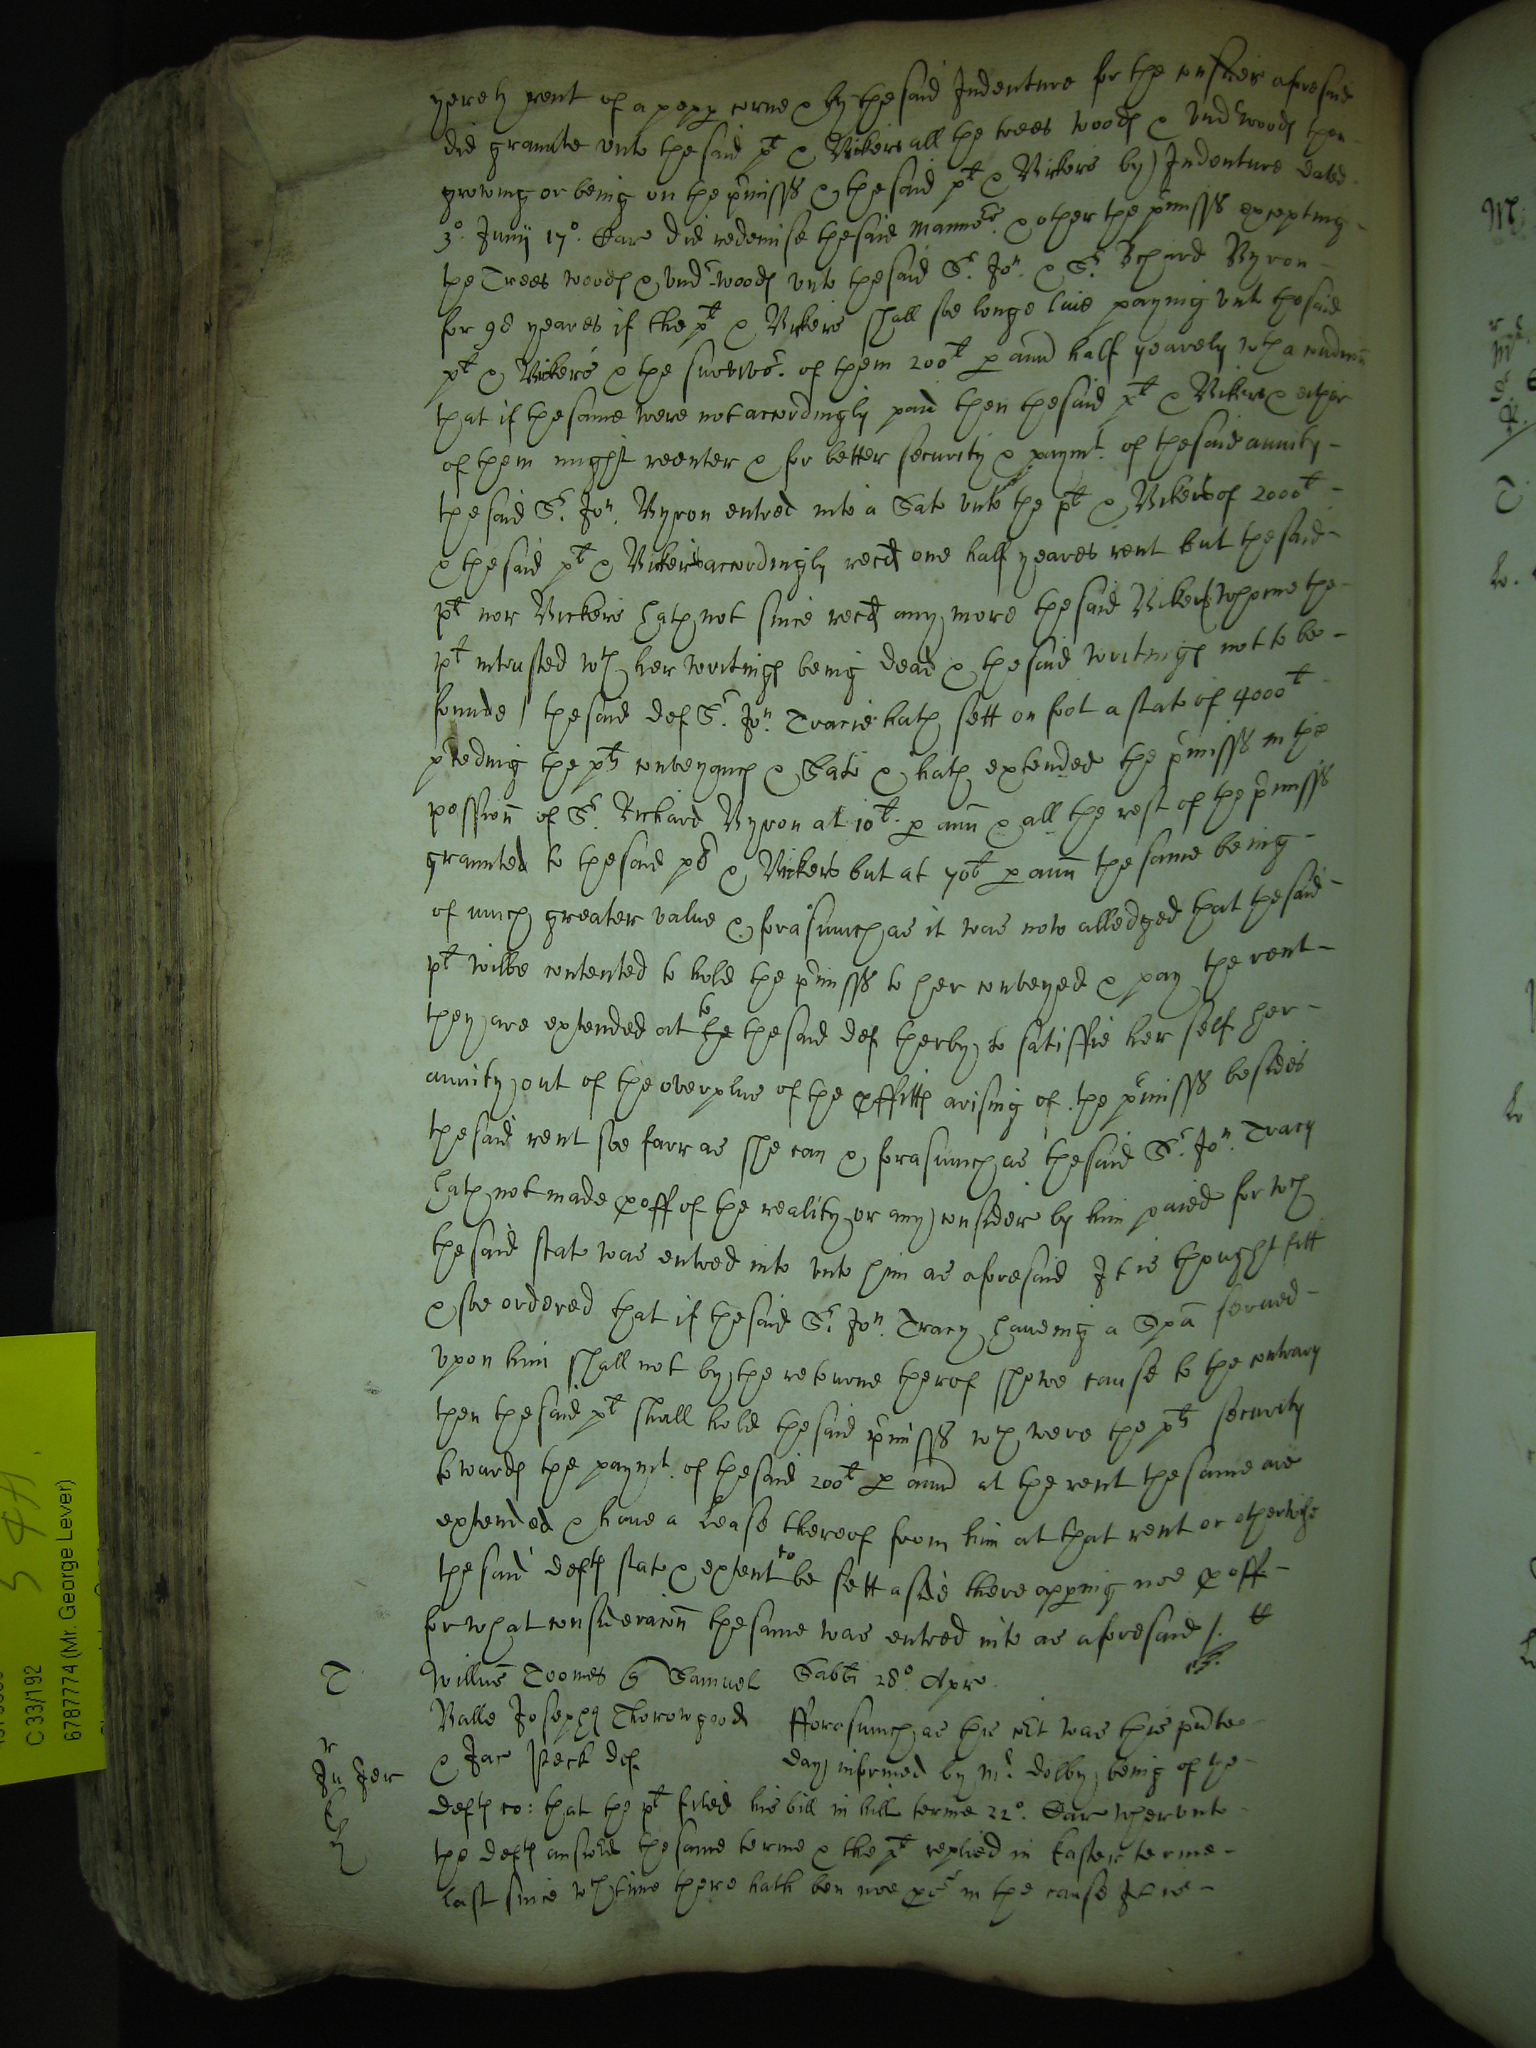 yerely rent of a pepp corne & by the said Indenture for the consider aforesaid
did graunte unto the said plt & Vickers all the trees woodes & undrwoodes then
growing or being on the prmisss & the said plt & Vickers by Indenture dated
3o. Junij 17o. Car did redemise the said Mannors. & other the prmisss excepting
the Trees woodes & undr-woodes unto the said Sr. Jon. & Sr. Richard Byron
for 98 yeares if the plt & Vickers shall soe longe live paying unto the said
plt & Vickers & the survivor. of them 200l p ann half yearely wth a condicon
that if the same were not accordingly paid then the said plt & Vickers & either
of them might reenter & for better security & paymt. of the said anuity
the said Sr. Jon. Byron entred into a Stato unto the plt & Vickers of 2000l
& the said plt & Vickers accordingly recd one half yeares rent but the said
plt nor Vickers hath not since recd any more the said Vickers whome the
plt intrusted wth her writinges being dead & the said writinges not to be
founde / the said def Sr. Jon. Tracie hath sett on foot a stato of 4000l
pceding the plts conveyance & Stato & hath extended the prmisss in the
possession of Sr. Richard Byron at 10l. p ann & all the rest of the prmisss
graunted to the said plt & Vickers but at 70l p ann the same being
of much greater value & forasmuch as it was now alledged that the said
plt wilbe contented to hold the prmisss to her conveyed & pay the rent
they are extended at to the said def therby to satisfie her self her
anuity out of the overplus of the pffittes arising of the prmisss besides
the said rent soe farr as she can & forasmuch as the said Sr. Jon. Tracy
hath not made pooff of the reality or any consider by him paied for wch
the said stato was entred into unto him as aforesaid It is thought fitt
& soe ordered that if the said Sr. Jon. Tracy haveing a Spa served
upon him shall not by the retourne therof shewe cause to the contrary
then the said plt shall hold the said prmisss wch were the plts security
towardes the paymt. of the said 200l p ann at the rent the same are
extended & have a Lease thereof from him at that rent or otherwise
the said deftes stato & extent to be sett aside there apping noe pooff
for what consideracon the same was entred into as aforesaid /.
T Willus Toomes Samuel Sabti 28o. Apr
Balle Joseph Thorowgood Fforasmuch as this Cort was this pnte
& Jac Peck def. day informed by Mr. Dolby being of the
In Jer
deftes co: that the plt filed his bill in hill terme 22o. Car wherunto
the deftes answered the same terme & the plt replied in Easter terme
last since wch time there hath ben noe pc in the cause It is
C 33/192
6787774 (Mr. George Lever)